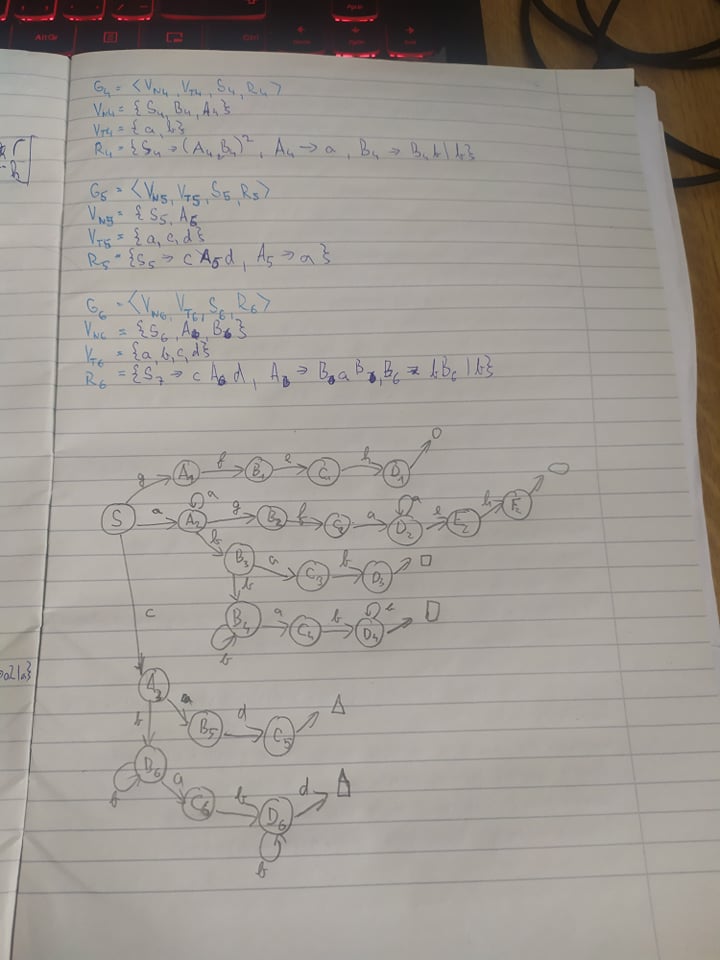 AltGr
Ctrl
G₄ = <V_N4, V_T4, S₄, R₄>
V_N4 = {S₄, B₄, A₄}
V_T4 = {a, b}
R₄ = {S₄ → (A₄,B₄)², A₄ → a, B₄ → B₄b|b}
G₅ = <V_N5, V_T5, S₅, R₅>
V_N5 = {S₅, A₅
V_T5 = {a, c, d}
R₅ = {S₅ → c A₅ d, A₅ → a}
G₆ = <V_N6, V_T6, S₆, R₆>
V_N6 = {S₆, A₆, B₆}
V_T6 = {a, b, c, d}
R₆ = {S₇ → c A₆ d, A₆ → B₆ a B₆, B₆ → b B₆ | b}
g A₁ f B₁ e C₁ h D₁
S a A₂ a g B₂ f C₂ a D₂ a e E₂ h F₂
b B₃ a C₃ b D₃
b
c B₄ a C₄ b D₄ e
b
A₃ a B₅ d C₅
b
B₆ a C₆ b D₆ d
b
b
→a2|a}